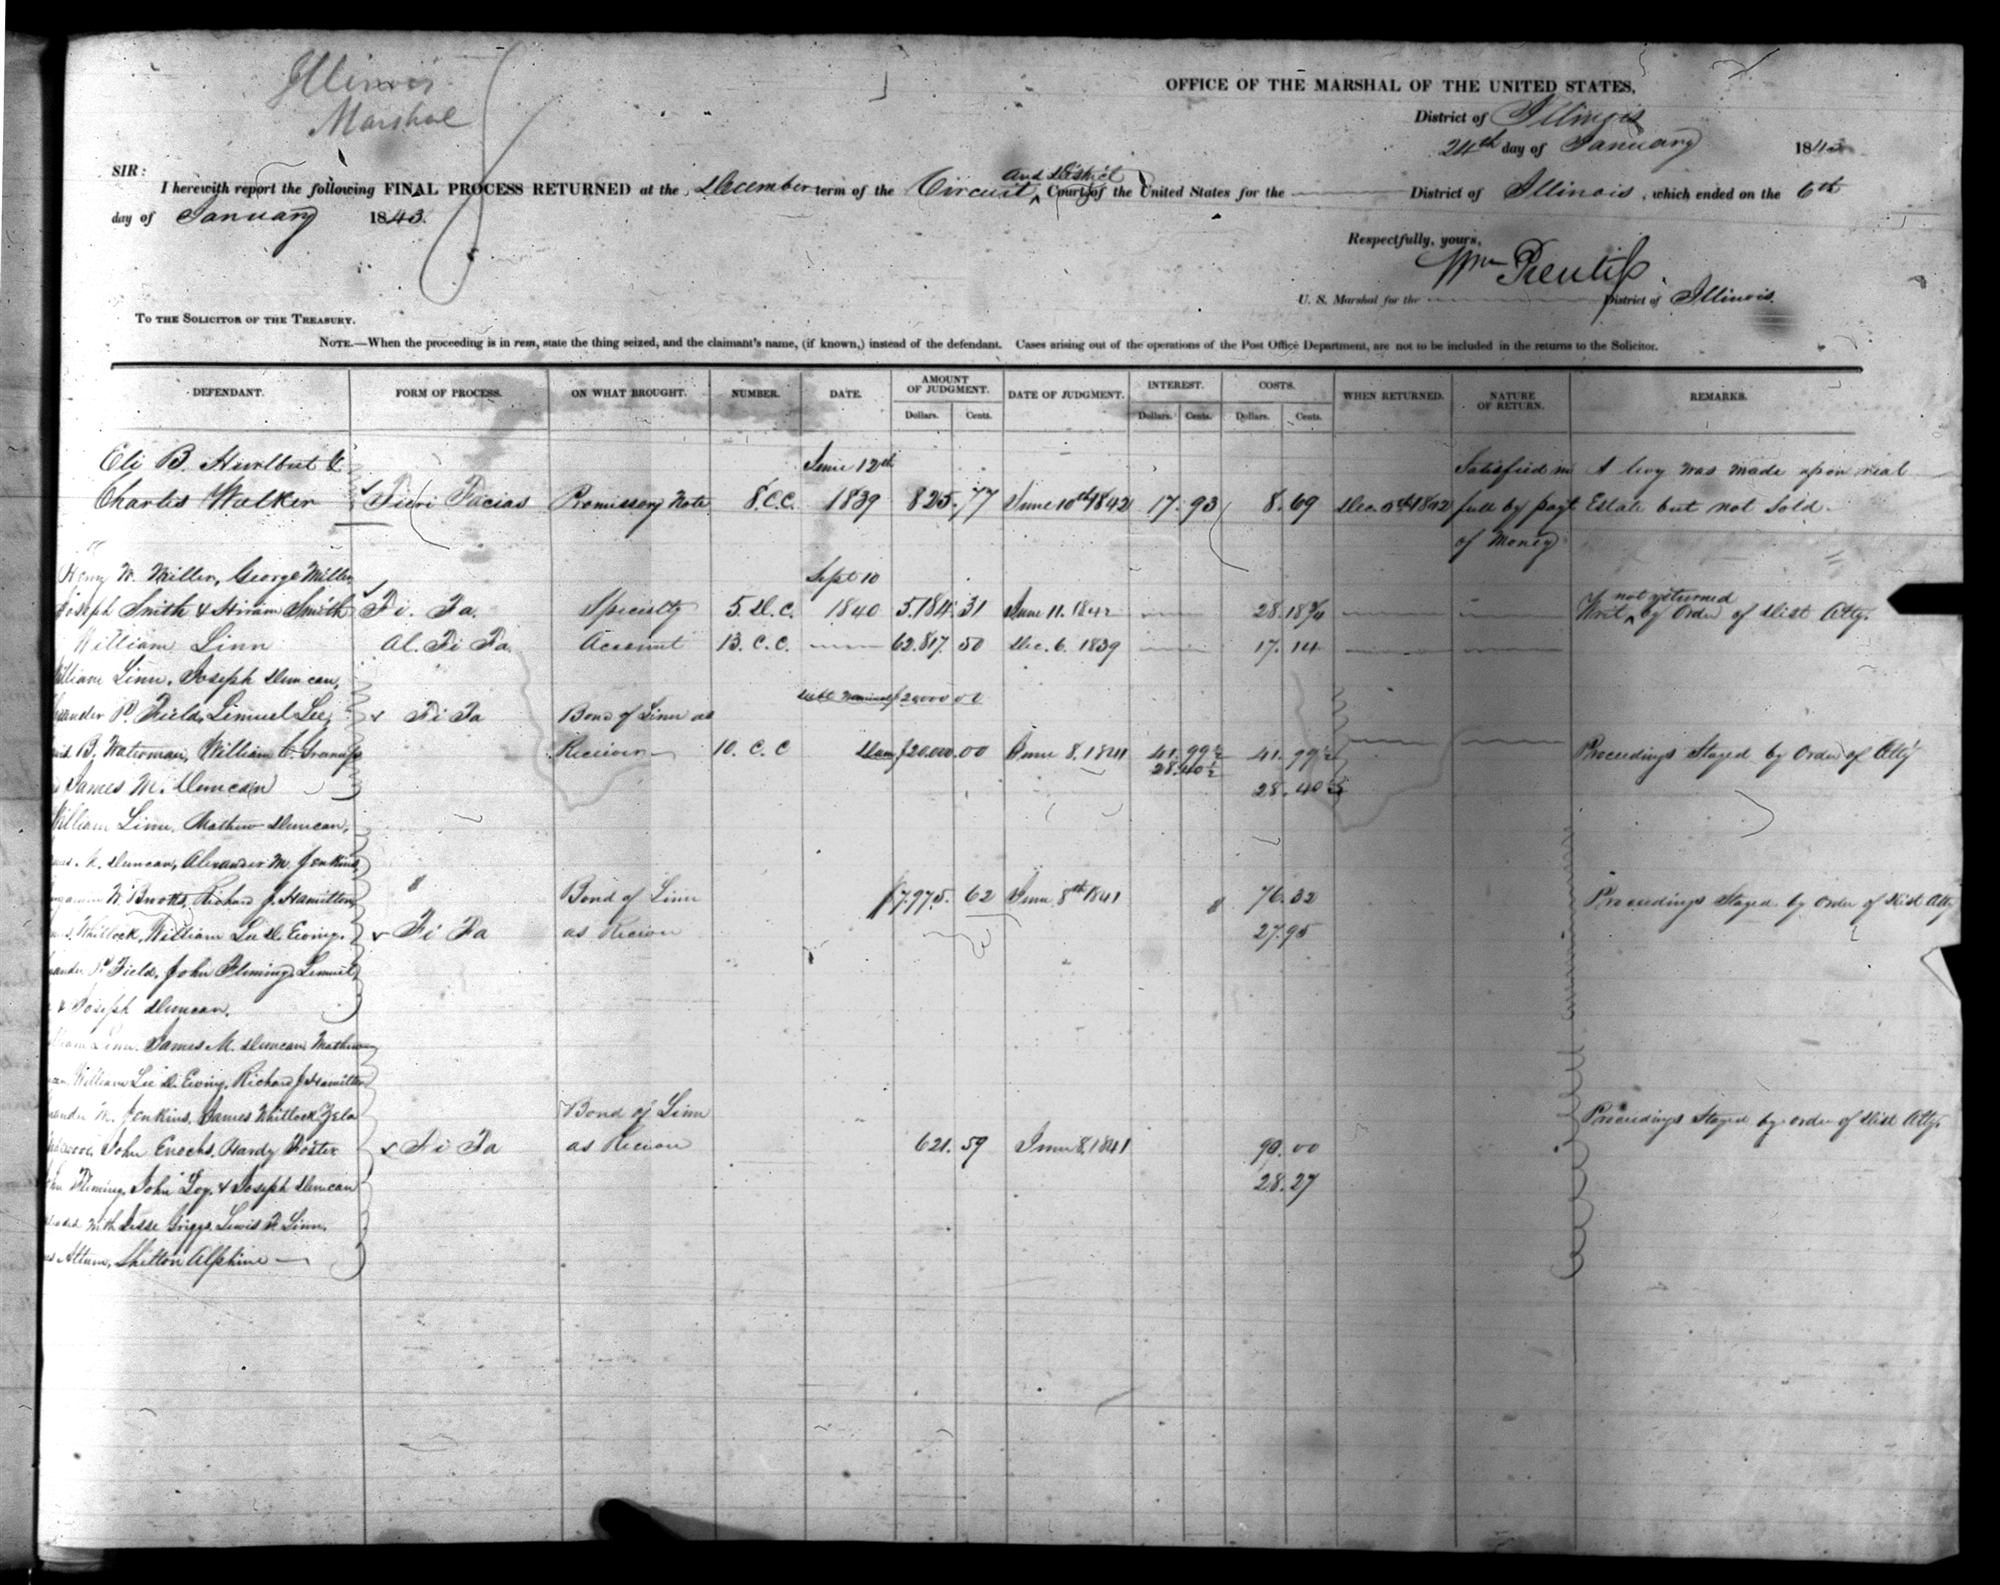 Illinois
Marshal
OFFICE OF THE MARSHAL OF THE UNITED STATES,
District of Illinois
24th day of January 1843
SIR:
I herewith report the following FINAL PROCESS RETURNED at the December term of the Circuit and District Court of the United States for the District of Illinois, which ended on the 6th
day of January 1843.
Respectfully, yours,
Wm Prentiss
U. S. Marshal for the District of Illinois.
TO THE SOLICITOR OF THE TREASURY.
NOTE.—When the proceeding is in rem, state the thing seized, and the claimant's name, (if known,) instead of the defendant. Cases arising out of the operations of the Post Office Department, are not to be included in the returns to the Solicitor.
DEFENDANT. FORM OF PROCESS. ON WHAT BROUGHT. NUMBER. DATE. AMOUNT OF JUDGMENT. DATE OF JUDGMENT. INTEREST. COSTS. WHEN RETURNED. NATURE OF RETURN. REMARKS.
Dollars. Cents. Dollars. Cents. Dollars. Cents.
Eli B. Hurlbut & June 12th Satisfied in A levy was made upon real
Charles Walker Fieri Facias Promissory Note 8. C.C. 1839 825. 77 June 10th 1842 17. 93 8. 69 Dec. 5th 1842 full by payt Estate but not Sold.
of Money
Henry W. Miller, George Miller Sept 10
Joseph Smith & Hiram Smith Fi. Fa. Specialty 5. D.C. 1840 5.184. 31 June 11. 1842 28. 18 3/4 Writ not returned by Order of Dist Atty.
William Linn Al. Fi Fa. Account 13. C.C. 62.817. 50 Dec. 6. 1839 17. 14
William Linn, Joseph Duncan,
Debt $20000 00
P. Field, Limuel Lee, Fi Fa Bond of Linn as
B. Waterman, William Receiver 10. C. C Dam $20.000. 00 June 8. 1841 41. 99 1/2 41. 99 1/2 Proceedings Stayed by Order of Atty
28. 40 1/2
James M. Duncan 28. 40 1/2
William Linn, Mathew Duncan,
M. Duncan, Alexander M. Jenkins
W. Brooks, Richard J. Hamilton, " Bond of Linn $7.975. 62 June 8th 1841 " 76. 32 Proceedings Stayed by order of Dist Atty
Whitlock, William Lee D. Ewing, Fi Fa as Receiver 27. 95
P. Field, John Fleming, Lemuel
& Joseph Duncan.
Linn, James M. Duncan, Mathew
William Lee D. Ewing, Richard J. Hamilton
M. Jenkins, James Whitlock, Bond of Linn Proceedings Stayed by order of Dist Atty.
John Enochs, Hardy Foster Fi Fa as Receiver 621. 59 June 8, 1841 90. 00
Fleming, John & Joseph Duncan 28. 27
with Jesse Griggs, Lewis F. Linn,
Altum, Shelton Alphine